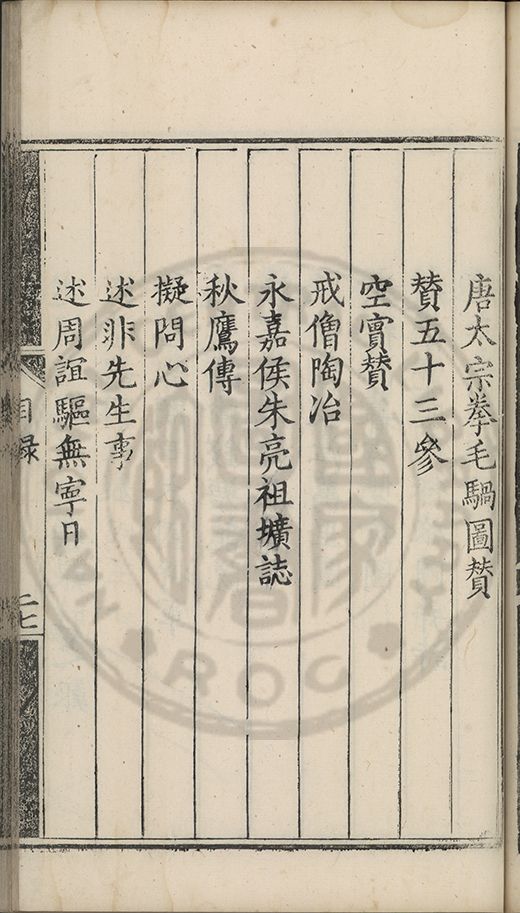 唐太宗拳毛騧圖賛
賛五十三參
空實賛
戒僧陶冶
永嘉侯朱亮祖壙誌
秋鷹傳
擬問心
述非先生事
述周誼驅無寧日
目録
二七